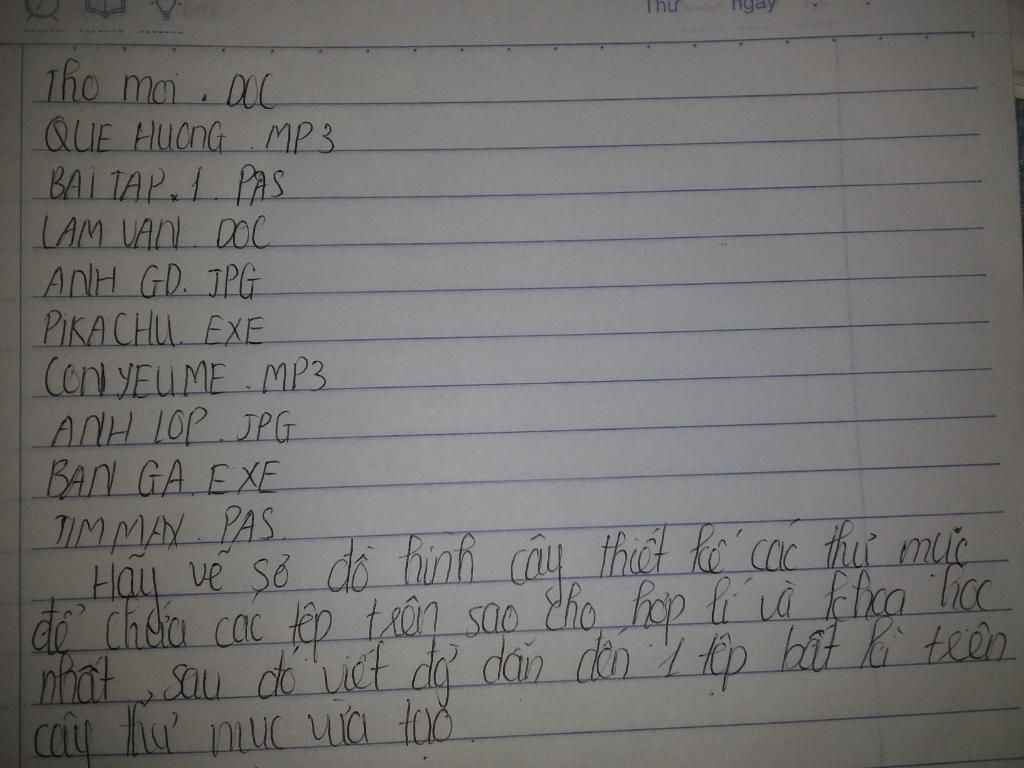 Thứ ngày
Tho moi . DOC
QUE HUONG . MP3
BAI TAP . 1 . PAS
LAM VAN . DOC
ANH GD . JPG
PIKACHU . EXE
CONYEUME . MP3
ANH LOP . JPG
BAN GA . EXE
TIMMAX . PAS
Hãy vẽ sơ đồ hình cây thiết kế các thư mục
để chứa các tệp trên sao cho hợp lí và khoa học
nhất, sau đó viết đg dẫn đến 1 tệp bất kì trên
cây thư mục vừa tạo